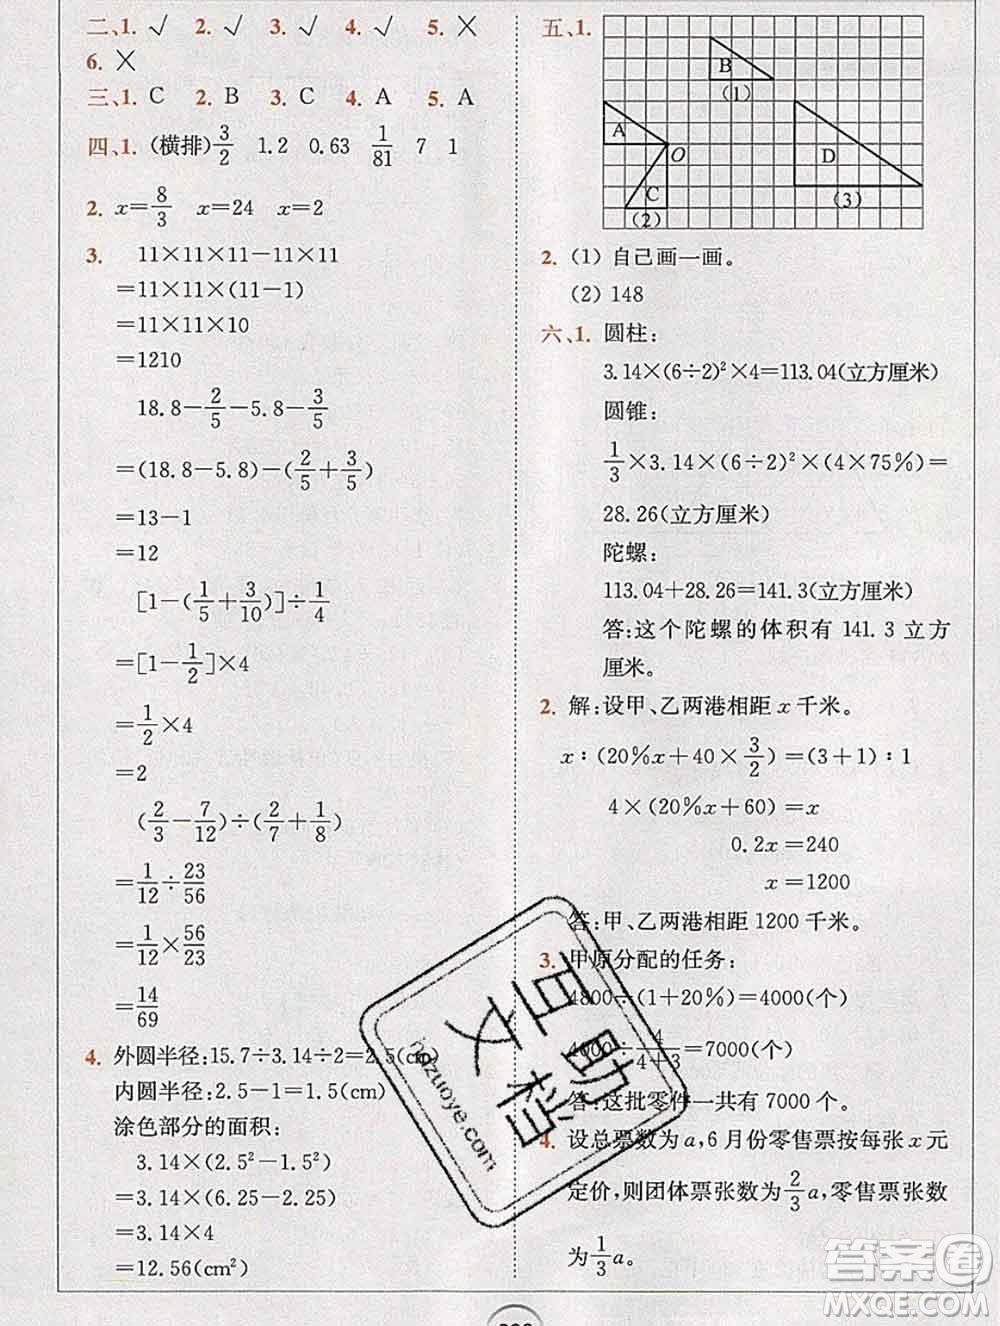 二、1. √ 2. √ 3. √ 4. √ 5. ×
6. ×
三、1. C 2. B 3. C 4. A 5. A
四、1. (横排) 3/2 1.2 0.63 1/81 7 1
2. x=8/3 x=24 x=2
3. 11×11×11-11×11
=11×11×(11-1)
=11×11×10
=1210
18.8-2/5-5.8-3/5
=(18.8-5.8)-(2/5+3/5)
=13-1
=12
[1-(1/5+3/10)]÷1/4
=[1-1/2]×4
=1/2×4
=2
(2/3-7/12)÷(2/7+1/8)
=1/12÷23/56
=1/12×56/23
=14/69
4. 外圆半径:15.7÷3.14÷2=2.5(cm)
内圆半径:2.5-1=1.5(cm)
涂色部分的面积:
3.14×(2.5²-1.5²)
=3.14×(6.25-2.25)
=3.14×4
=12.56(cm²)
五、1.
B
(1)
A
O
C
(2)
D
(3)
2. (1) 自己画一画。
(2) 148
六、1. 圆柱:
3.14×(6÷2)²×4=113.04(立方厘米)
圆锥:
1/3×3.14×(6÷2)²×(4×75%)=
28.26(立方厘米)
陀螺:
113.04+28.26=141.3(立方厘米)
答:这个陀螺的体积有 141.3 立方
厘米。
2. 解:设甲、乙两港相距 x 千米。
x:(20%x+40×3/2)=(3+1):1
4×(20%x+60)=x
0.2x=240
x=1200
答:甲、乙两港相距 1200 千米。
3. 甲原分配的任务:
4800÷(1+20%)=4000(个)
4000÷4/(4+3)=7000(个)
答:这批零件一共有 7000 个。
4. 设总票数为 a,6 月份零售票按每张 x 元
定价,则团体票张数为 2/3 a,零售票张数
为 1/3 a。
百文
助档
hgzuoye.com
答案圈
MXQE.COM